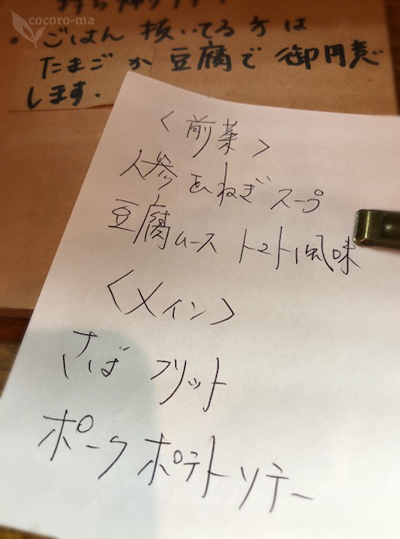 cocoro-ma
・ごはん 抜いてる方は
たまごか豆腐で御用意
します.
〈前菜〉
人参 玉ねぎ スープ
豆腐ムース トマト風味
〈メイン〉
さば フリット
ポーク ポテトソテー